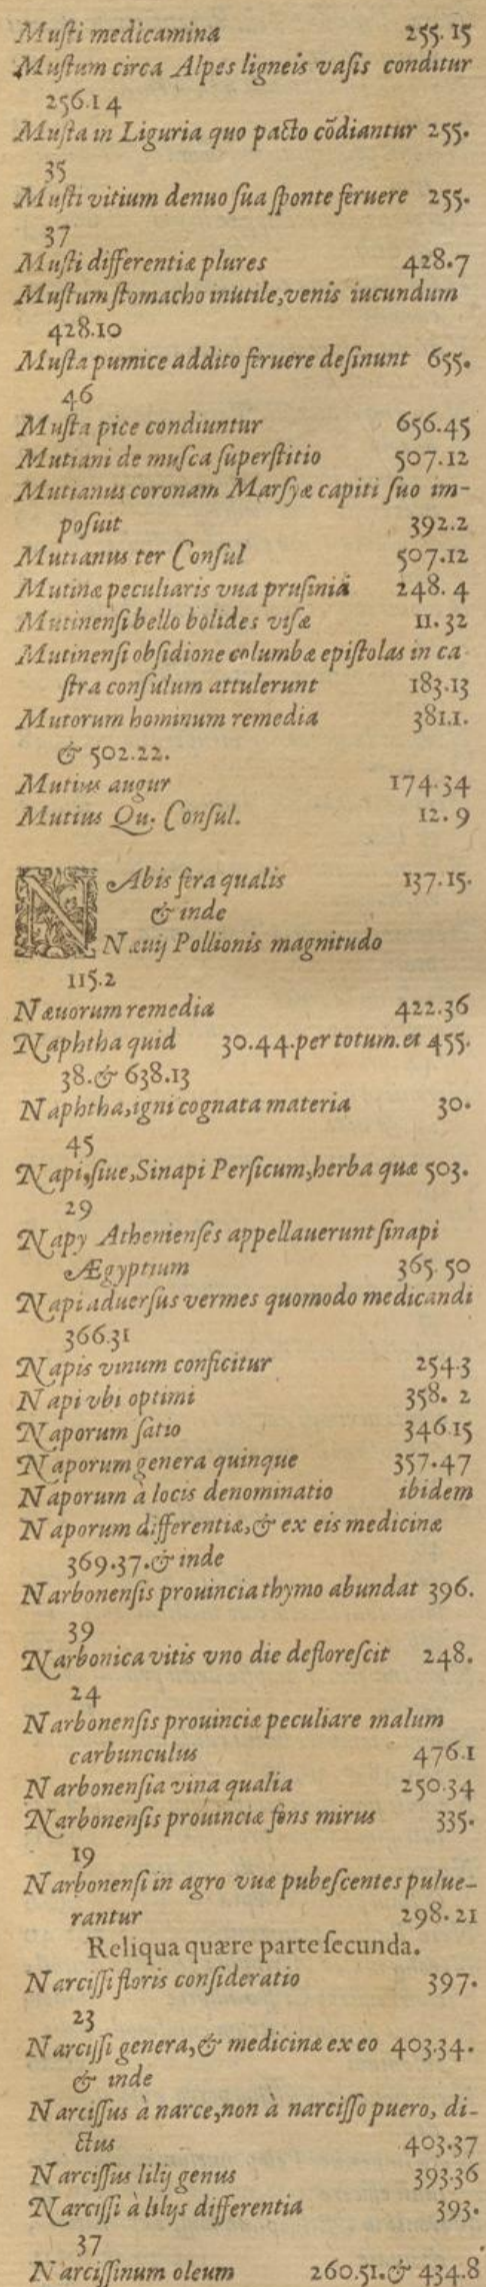 Musti medicamina 255.15
Mustum circa Alpes ligneis vasis conditur
256.14
Musta in Liguria quo pacto cõdiantur 255.
35
Musti vitium denuo sua sponte feruere 255.
37
Musti differentiæ plures 428.7
Mustum stomacho inutile,venis iucundum
428.10
Musta pumice addito feruere desinunt 655.
46
Musta pice condiuntur 656.45
Mutiani de musca superstitio 507.12
Mutianus coronam Marsyæ capiti suo im-
posuit 392.2
Mutianus ter Consul 507.12
Mutinæ peculiaris vua prusiniã 248.4
Mutinensi bello bolides visæ 11.32
Mutinensi obsidione columbæ epistolas in ca-
stra consulum attulerunt 183.13
Mutorum hominum remedia 381.1.
& 502.22.
Mutius augur 174.34
Mutius Qu. Consul. 12.9
NAbis fera qualis 137.15.
& inde
Næuij Pollionis magnitudo
115.2
Næuorum remedia 422.36
Naphtha quid 30.44.per totum.et 455.
38.& 638.13
Naphtha,igni cognata materia 30.
45
Napi,siue,Sinapi Persicum,herba quæ 503.
29
Napy Athenienses appellauerunt sinapi
Ægyptium 365.50
Napi aduersus vermes quomodo medicandi
366.31
Napis vinum conficitur 254.3
Napi vbi optimi 358.2
Naporum satio 346.15
Naporum genera quinque 357.47
Naporum à locis denominatio ibidem
Naporum differentiæ,& ex eis medicinæ
369.37.& inde
Narbonensis prouincia thymo abundat 396.
39
Narbonica vitis vno die deflorescit 248.
24
Narbonensis prouinciæ peculiare malum
carbunculus 476.1
Narbonensia vina qualia 250.34
Narbonensis prouinciæ fons mirus 335.
19
Narbonensi in agro vuæ pubescentes pulue-
rantur 298.21
Reliqua quære parte secunda.
Narcissi floris consideratio 397.
23
Narcissi genera,& medicinæ ex eo 403.34.
& inde
Narcissus à narce,non à narcisso puero, di-
ctus 403.37
Narcissus lilij genus 393.36
Narcissi à lilijs differentia 393.
37
Narcissinum oleum 260.51.& 434.8